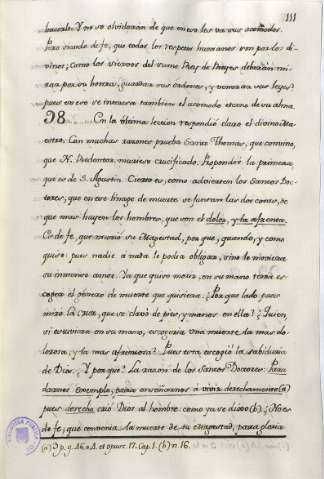 111
humanale. Y no se olvidaràn de que en eso les va sus acomodos.
Pero siendo de fe, que todos los respetos humanos son por los di-
vinos; como los viceros del sumo Rey de Reyes deberàn mi-
rar por su honra, guardar sus ordenes, y venerar sus leyes:
pues en eso se interesa tambien el acomodo eterno de su alma.
98. En la ultima leccion respondiò claro el divino Ma-
estro. Con muchas razones prueba Santo Thomas, que convino,
que N. Redentor, muriese crucificado. Propondrè la primera,
que es de S. Agustin. Cierto es, como advierten los Santos Doc-
tores, que en ese linage de muerte se juntan las dos cosas, de
que mas huyen los hombres, que son el dolor, y la afrenta.
Es de fe, que murió su Magestad, por que, quando, y como
quiso: pues nadie à nada le podia obligar, sino le movièra
su inmenso amor. Ya que quiso morir, en su mano tenia es-
coger el genero de muerte que quisiera. ¿Por que lado pues
miró la cruz, que se clavó de pies, y manos en ella? ¿Quien,
si estuviera en su mano, escogeria una muerte la mas do-
lorosa, y la mas afrentosa? Pues esta escogió la sabiduria
de Dios. ¿Y por què? La razon de los Santos Doctores: Para
darnos exemplo, para enseñarnos à vivir derechamente (a)
pues derecho crió Dios al hombre como ya se dixo (b). ¿No es
de fe, que convenia la muerte de su Magestad, para gloria
(a) 3. p. q. 46. a. 4. et opusc. 17. Cap. 1. (b) n. 16.